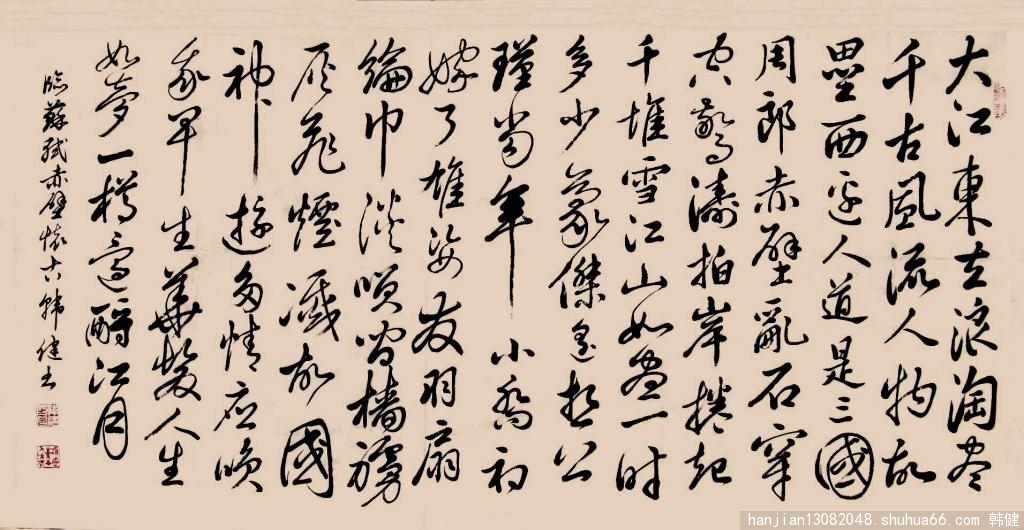 大江東去浪淘盡
千古風流人物故
壘西邊人道是三國
周郎赤壁亂石穿
空驚濤拍岸捲起
千堆雪江山如畫一時
多少豪傑遙想公
瑾當年小喬初
嫁了雄姿發羽扇
綸巾談笑間檣艣
灰飛煙滅故國
神遊多情應笑
我早生華髮人生
如夢一樽還酹江月
臨蘇軾赤壁懷古韓健書
hanjian13082048.shuhua66.com 韩健